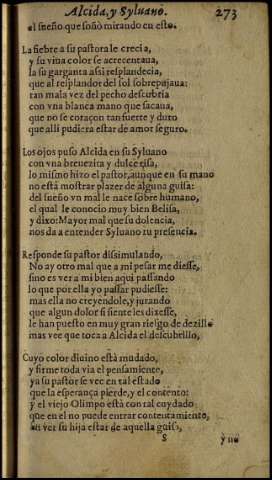 Alcida, y Syluano. 273
el sueño que soñò mirando en esto.
La fiebre a su pastora le crecia,
y su viua color se acrecentaua,
la su garganta assi resplandecia,
que al resplandor del sol sobrepujaua:
tan mala vez del pecho descubria
con vna blanca mano que sacaua,
que no se coraçon tan fuerte y duro
que alli pudiera estar de amor seguro.
Los ojos puso Alcida en su Syluano
con vna breuezita y dulce risa,
lo mismo hizo el pastor, aunque en su mano
no està mostrar plazer de alguna guisa:
del sueño vn mal le nace sobre humano,
el qual le conocio muy bien Belisa,
y dixo: Mayor mal que su dolencia,
nos da a entender Syluano tu presencia.
Responde su pastor dissimulando,
No ay otro mal que a mi pesar me diesse,
sino es ver a mi bien aqui passando
lo que por ella yo passar pudiesse:
mas ella no creyendole, y jurando
que algun dolor si siente les dixesse,
le han puesto en muy gran riesgo de dezillo
mas vee que toca a Alcida el descubrillo,
Cuyo color diuino està mudado,
y firme toda via el pensamiento,
ya su pastor se vee en tal estado
que la esperança pierde, y el contento:
y el viejo Olimpo està con tal cuydado
que en el no puede entrar contentamiento,
en ver su hija estar de aquella guisa,
S y no